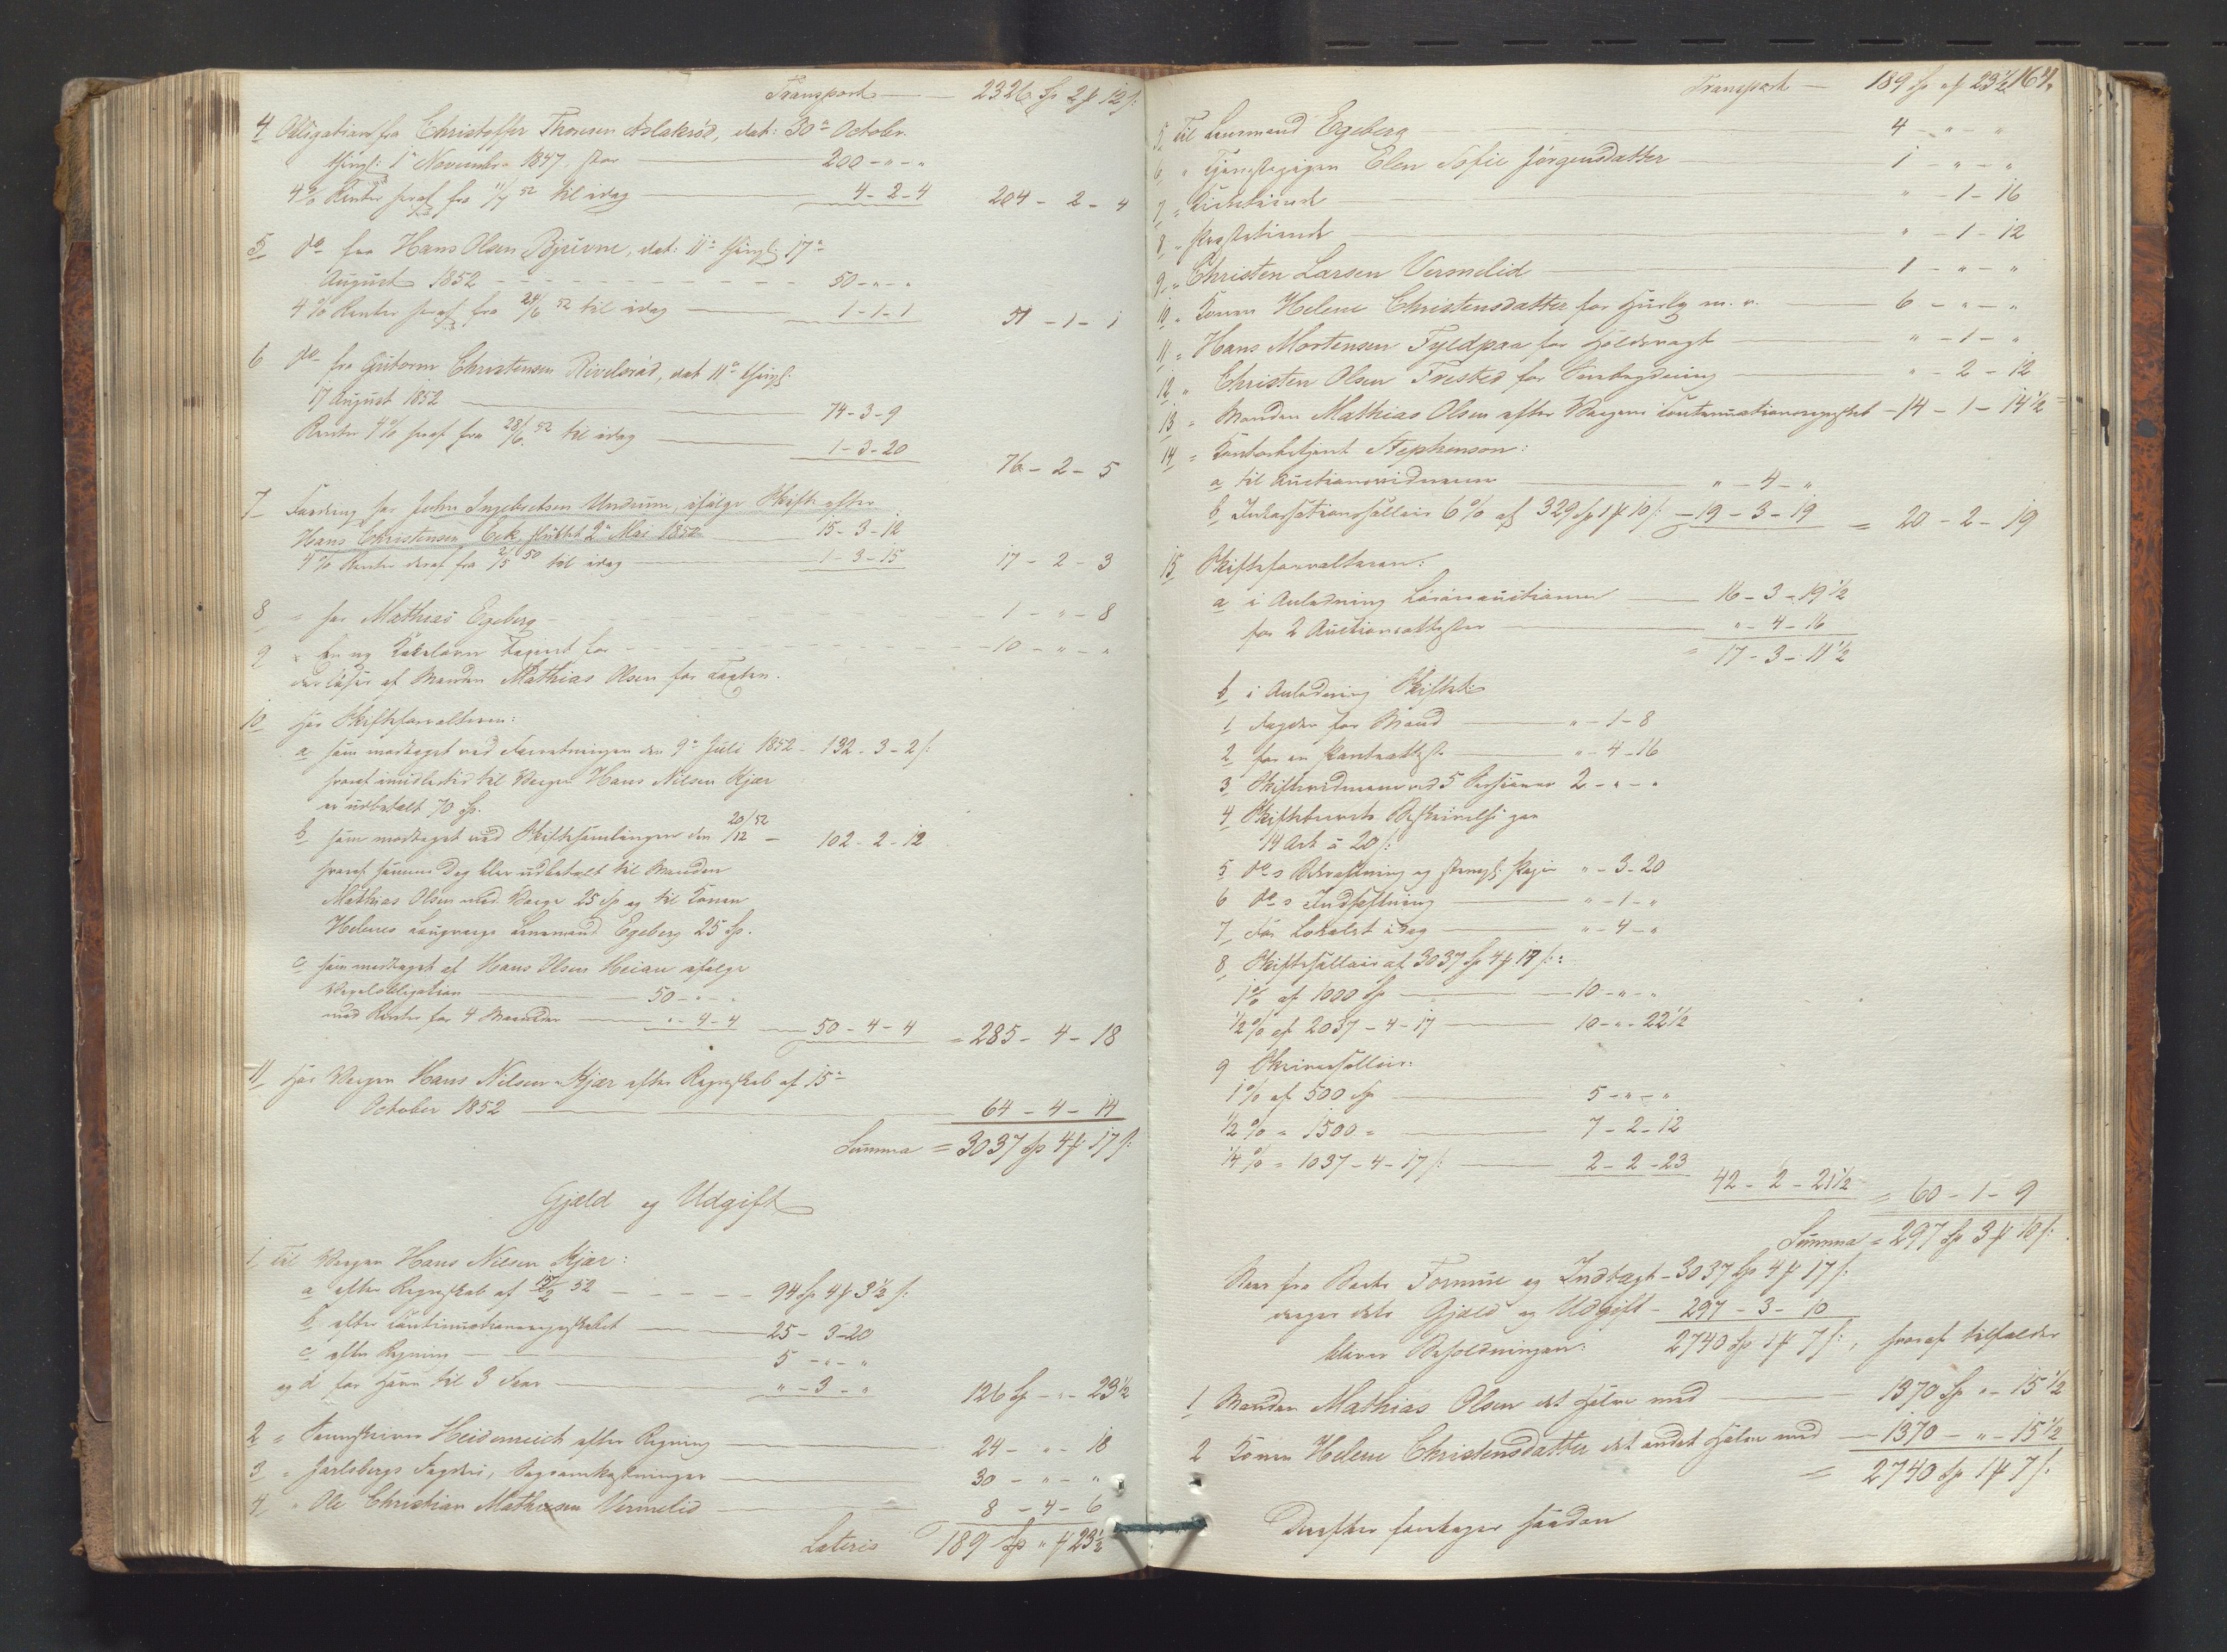 Transport — 2326 Sp 2 ß 12 s:
4 Obligation fra Christoffer Thorsen Aslaksrød, dat: 30te October
thingl: 1te November 1847, stor — 200 - " - "
4% Renter heraf fra 11/7 52 til idag — 4 - 2 - 4 204 - 2 - 4
5 do fra Hans Olsen Bjuerne, dat: 11te thingl: 17te
August 1852 — 50 - " - "
4% Renter heraf fra 24/6 52 til idag — 1 - 1 - 1 51 - 1 - 1
6 do fra Guttorm Christensen Rivelsrød, dat 11te thingl:
17 August 1852 — 74 - 3 - 9
Renter 4% heraf fra 28/6 52 til idag — 1 - 3 - 20 76 - 2 - 5
7 Fordring hos John Ingebretsen Undrum, ifølge Skifte efter
Hans Christensen Eek, sluttet 2den Mai 1850 — 15 - 3 - 12
4% Renter deraf fra 2/5 50 til idag — 1 - 3 - 15 17 - 2 - 3
8 " hos Mathias Egeberg — 1 - " - 8
9 " En ny Kakelovn taxeret for — 10 - " - "
udløses af Manden Mathias Olsen for Taxten.
10 Hos Skifteforvalteren:
a som modtaget ved Forretningen den 9de Juli 1852 - 132 - 3 - 2 s:
hvoraf imidlertid til Værgen Hans Nilsen Kjær
er udbetalt 70 Sp.
b som modtaget ved Skiftesamlingen den 20/12 52 — 102 - 2 - 12
hvoraf samme Dag blev udbetalt til Manden
Mathias Olsen med Værge 25 Sp og til Konen
Helenes Laugværge Lensmand Egeberg 25 Sp.
c som modtaget af Hans Olsen Heian ifølge
Vexelobligation — 50 - " - "
med Renter for 4 Maaneder — " - 4 - 4 — 50 - 4 - 4 = 285 - 4 - 18
11 Hos Værgen Hans Nilsen Kjær efter Regnskab af 15de
October 1852 — 64 - 4 - 14
Summa = 3037 Sp 4 ß 17 s:
Gjæld og Udgift
1 Til Værgen Hans Nilsen Kjær:
a efter Regnskab af 15/2 52 — 94 Sp 4 ß 3½ s:
b efter Continuationsregnskabet — 25 - 3 - 20
c efter Regning — 5 - " - "
og d for Havre til 3 Faar — " - 3 - " 126 Sp - " - 23½
2 " Sorenskriver Heidenreich efter Regning — 24 - " - 18
3 " Jarlsbergs Fogderi, Sagsomkostninger — 30 - " - "
4 " Ole Christian Mathisen Vermelid — 8 - 4 - 6
Lateris 189 Sp " ß 23½
Transport — 189 Sp " ß 23½ 164.
5 Til Lensmand Egeberg — 4 - " - "
6 " Tjenestepigen Elen Sofie Jörgensdatter — 1 - " - "
7 " Kirketiende — " - 1 - 16
8 " Præstetiende — " - 1 - 12
9 " Christen Larsen Vermelid — 1 - " - "
10 " Konen Helene Christensdatter for Huusly m. v. — 6 - " - "
11 " Hans Mortensen Fyldpaa for Holdsvagt — " - 1 - "
12 " Christen Olsen Trested for — " - 2 - 12
13 " Manden Mathias Olsen efter Værgens Continuationsregnskab - 14 - 1 - 14½
14 " Contorbetjent Stephenson:
a til Auctionsvidnerne — " - 4 - "
b Incassationssallair 6% af 329 Sp 1 ß 10 s: — 19 - 3 - 19 = 20 - 2 - 19
15 Skifteforvalteren:
a i Anledning Løsøreauctionen — 16 - 3 - 19½
for 2 Auctionsattester — " - 4 - 16
= 17 - 3 - 11½
b i Anledning Skiftet:
1 Fogden for Mand — " - 1 - 8
2 for en Pantattest — " - 4 - 16
3 Skiftevidnerne ved 5 Sessioner 2 - " - "
4 Skiftebrevets Beskrivelse paa
14 Ark à 20 s:
5 do s Bekræftning og stempl: Papir " - 3 - 20
6 do s Indhæftning — " - 1 - "
7 For Lokalet idag — " - 4 - "
8 Skiftesallair af 3037 Sp 4 ß 17 s:
1% af 1000 Sp — 10 - " - "
½% af 2037 - 4 - 17 — 10 - " - 22½
9 Skriversallair:
1% af 500 Sp — 5 - " - "
½% " 1500 " — 7 - 2 - 12
¼% " 1037 - 4 - 17 s: — 2 - 2 - 23
42 - 2 - 21½ = 60 - 1 - 9
Summa = 297 Sp 3 ß 10 s:
Naar fra Boets Formue og Indtægt - 3037 Sp 4 ß 17 s:
drages dets Gjæld og Udgift - 297 - 3 - 10
bliver Beholdningen: 2740 Sp 1 ß 7 s:, hvoraf tilfalder
1 Manden Mathias Olsen det Halve med — 1370 Sp " - 15½
2 Konen Helene Christensdatter det andet Halve med — 1370 - " - 15½
= 2740 Sp 1 ß 7 s:
Derefter foretages saadan